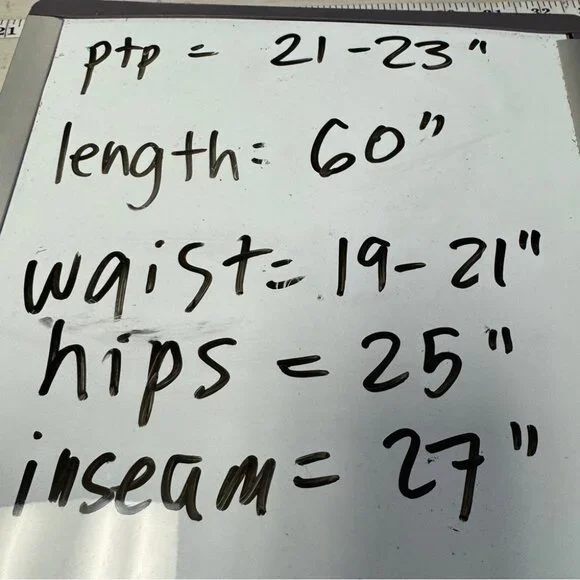 ptp = 21-23"
length: 60"
waist= 19-21"
hips = 25"
inseam= 27"